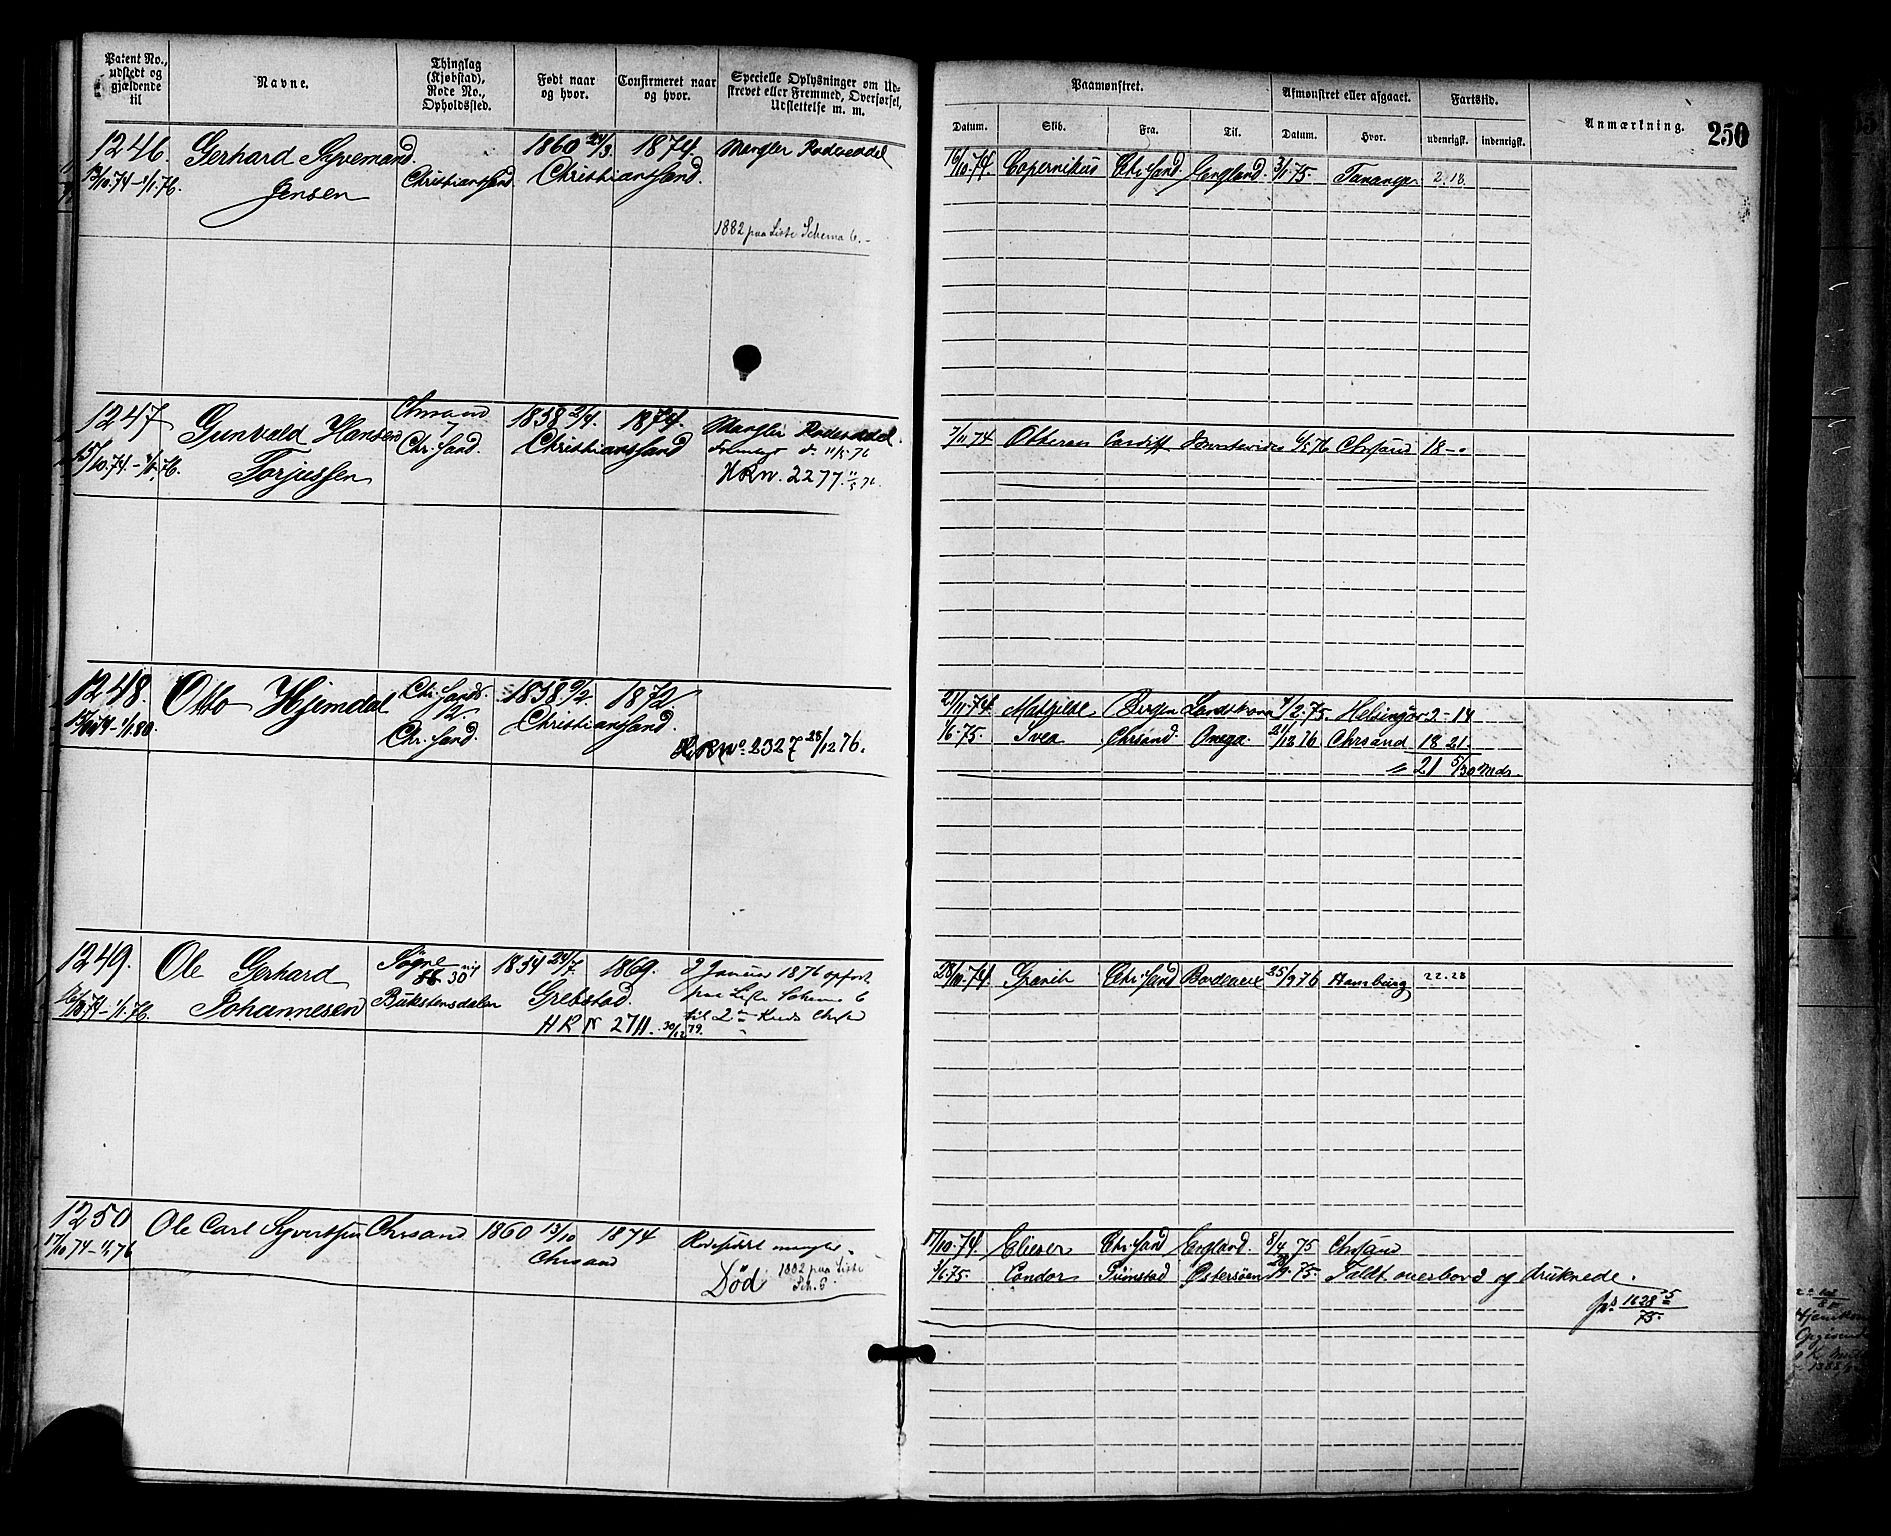 Patent No., udstedt og gjældende til
Navne.
Thinglag (Kjøbstad), Rode No., Opholdssted.
Født naar og hvor.
Confirmeret naar og hvor.
Specielle Oplysninger om Udskrevet eller Fremmed, Overførsel, Udslettelse m. m.
Paamønstret.
Afmønstret eller afgaaet.
Fartstid.
Anmærkning.
250
Datum.
Skib.
Fra.
Til.
Datum.
Hvor.
udenrigsk.
indenrigsk.
1246. Gerhard Syvemand 1860 24/3 1874. Mangler Rodeseddel
13/10.74 - 1/1.76. Jensen Christianssand Christianssand.
1882 paa Liste Schema 6.
16/10.74. Copernikus Chr.sand. England. 3/1.75. Tananger 2.18
1247 Gunvald Hansen Chrsand 1858 2/4 1874. Mangler Rodeseddel.
15/10.74 - 1/1.76. Torjussen 7 Chr.sand. Christianssand
HRN. 2277. 11/5 76.
7/11 74 Otteren Cardiff 6/5.76 Chrsand 18 -
1248. Otto Hjemdal Chr.sands. 1858 9/2. 1872.
12 Chr.sand. Christianssand.
HRNo. 2327 28/12 76.
21/11.74. Mathilde Bergen Landskrona 4/2.75. Helsingør 2 - 14
1/6.75. Svea Chrsand. Onega. 21/12 76 Chrsand 18 21
21 5/30 Mdr.
1249. Ole Gerhard Søgne 1854 24/7. 1869. 2 Januar 1876 opført
Johannesen 30 Grebstad. paa Liste Schema 6
Bukstensdalen til 2
HRN 2711. 30/12 79.
28/10.74. Granit Chr.sand 25/9 76 Hamburg 22.28
1250 Ole Carl Syvertsen Chrsand 1860 13/10 1874 mangler
17/10.74 - 1/1 76 Chrsand
Død 1882 paa Liste Sch. 6
17/10.74. Elieser Chr.sand England. 8/4 75 Chrsand
3/6.75. Condor Grimstad Østersøen 75. Faldt overbord og druknede.
1628 75
75.